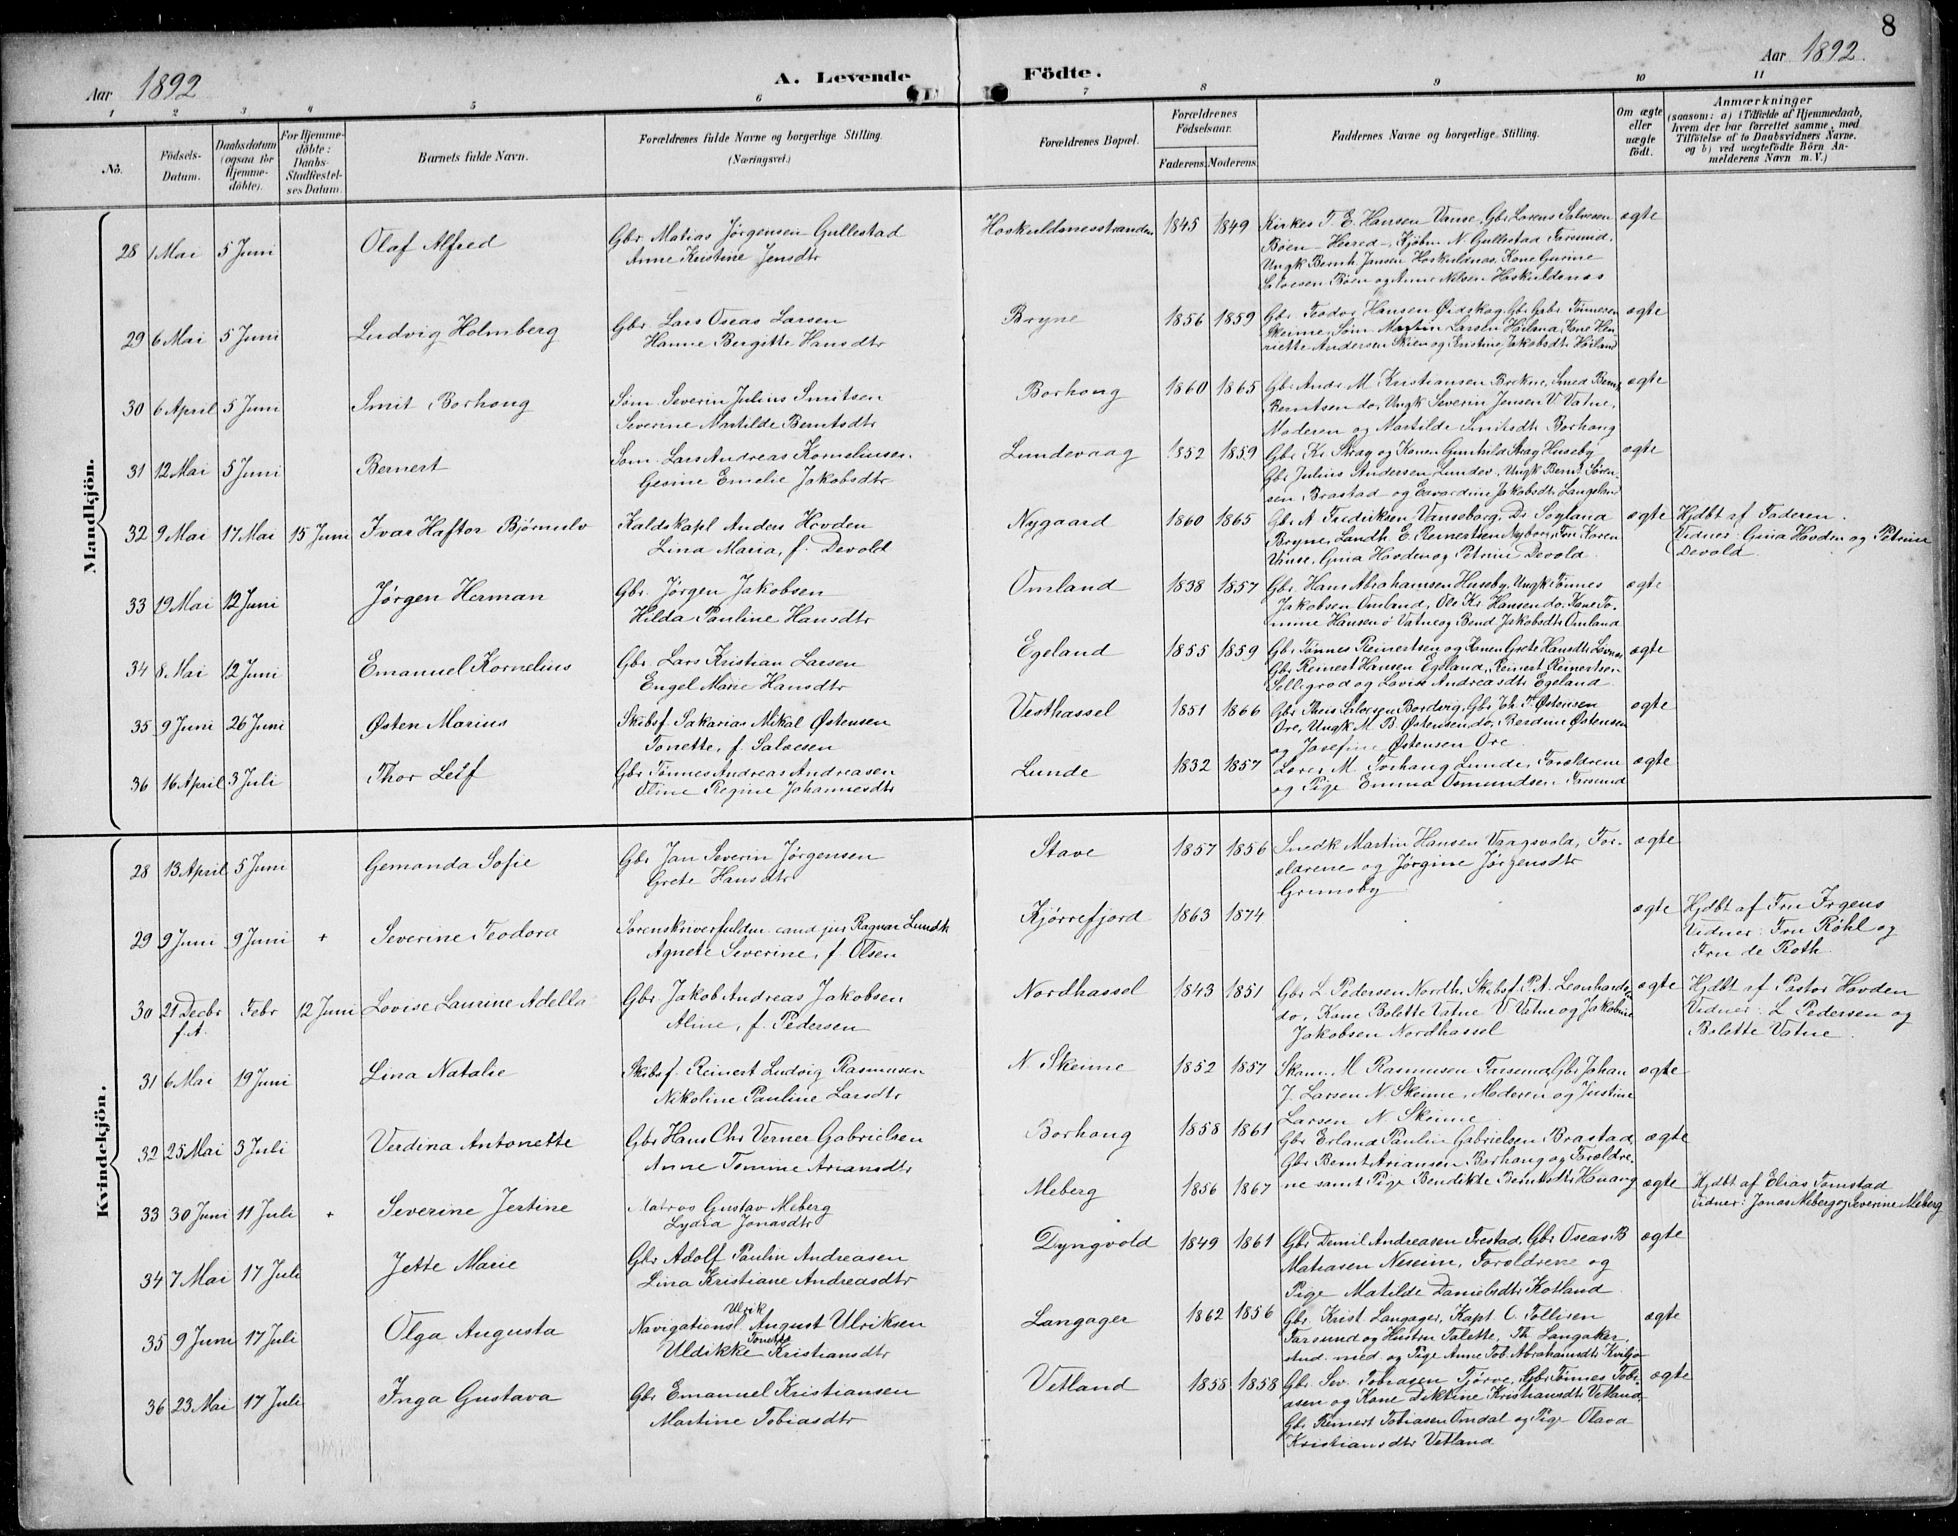 8
Aar 1892
A. Levende Födte.
Aar 1892.
1 2 3 4 5 6 7 8 9 10 11
No.
Födsels-Datum.
Daabsdatum (ogsaa for Hjemmedöbte).
For Hjemmedöbte: Daabs-Stadfestelses Datum.
Barnets fulde Navn.
Forældrenes fulde Navne og borgerlige Stilling. (Næringsvei.)
Forældrenes Bopæl.
Forældrenes Födselsaar.
Faderens. Moderens.
Faddernes Navne og borgerlige Stilling.
Om ægte eller uægte født.
Anmærkninger
(saasom: a) i Tilfælde af Hjemmedaab, hvem der har forrettet samme, med Tilföielse af to Daabsvidners Navne, og b) ved uægtefödte Börn Anmelderens Navn m. V.)
Mandkjön.
28 1 Mai 5 Juni Olaf Alfred Gbr. Matias Jørgensen Gullestad
Anne Kristine Jensdtr
Hoskuldsnesstranden 1845 1849 Kirkes T. E. Hansen Vanse, Gbr Lorens Salvesen ægte
Böen Herred, Kjøbm N. Gullestad Farsund,
Ungk Bernh Jansen Hoskuldsnes, Kone Gurine
Salvesen Böen og Anne Nilsen Hoskuldsnes
29 6 Mai 5 Juni Ludvig Holmberg Gbr Lars Oseas Larsen
Hanne Bergitte Hansdtr
Bryne 1856 1859 Gbr Teodor Hansen Ørdskog, Gbr Gabr Tønnesen ægte
Skeime, Søm. Martin Larsen Høiland, Kone Henriette Andersen Skien og Kristine Jakobsdtr Høiland
30 6 April 5 Juni Smit Borhaug Søm. Severin Julius Smitsen
Severine Martilde Berntsdtr
Borhoug 1860 1865 Gbr Andr M Kristiansen Brekne, Smed Bernt ægte
Berntsen do, Ungk Severin Jensen V. Vatne,
Moderen og Martilde Smitsdtr Borhaug
31 12 Mai 5 Juni Bernert Søm. Lars Andreas Korneliusen
Gesine Emelie Jakobsdtr
Lundevaag 1852 1859 Gbr Kr. Skrag og Konen Gunhild Skrag Huseby ægte
Gbr Julius Andersen Lundev., Ungk Bernt Sørensen Brastad og Edvardine Jakobsdtr Langeland
32 9 Mai 17 Mai 15 Juni Ivar Haftor Bjørnulv Kaldskapl Anders Hovden
Lina Maria, f. Devold
Nygaard 1860 1865 Gbr A. Fredriksen Vanseborg, Dr Søyland ægte Hjdbt af Faderen.
Bryne, Landh. E. Reinertsen Nyborg, Fru Karen Vidner: Gina Hovden og Petrine
Vanse, Gina Hovden og Petrine Devold Devold
33 19 Mai 12 Juni Jørgen Herman Gbr. Jørgen Jakobsen
Hilda Pauline Hansdtr
Omland 1838 1857 Gbr Hans Abrahamsen Huseby, Ungk Tønnes ægte
Jakobsen Omland, Ole Kr. Hansen do, Kone Tomine Hansen ø Vatne og Bend Jakobsdtr Omland
34 8 Mai 12 Juni Emanuel Kornelius Gbr Lars Kristian Larsen
Engel Marie Hansdtr
Egeland 1855 1859 Gbr Tønnes Reinertsen og Konen Grete Hansdtr ægte
Gbr Reinert Hansen Egeland, Reinert Reinertsen
Selligrod og Lovise Andreasdtr Egeland
35 9 Juni 26 Juni Østen Marius Skibsf. Sakarias Mikal Østensen
Tonette, f. Salvesen
Vesthassel 1851 1866 Gbr Theis Salvesen Bordvig, Gbr Joh. F. Østensen ægte
Ore, Ungk M. B. Østensen do, Berdine Østensen
og Josefine Østensen Ore
36 16 April 3 Juli Thor Leif Gbr Tønnes Andreas Andreasen
Oline Regine Johannesdtr
Lunde 1832 1857 Lærer M. Torhaug Lunde, Foreldrene ægte
og Pige Emma Osmundsen Farsund
Kvindekjön.
28 13 April 5 Juni Gemanda Sofie Gbr Jan Severin Jørgensen
Grete Hansdtr
Stave 1857 1856 Snedk Martin Hansen Vaagsvold, For- ægte
eldrene og Jørgine Jørgensdtr
Grimsby
29 9 Juni 9 Juni + Severine Teodora Sorenskriverfuldm. cand jur Ragnar Lundh
Agnete Severine, f. Olsen
Kjørrefjord 1863 1874 ægte Hjdbt af Fru Irgens
Vidner: Fru Röhl og
Fru de Roth
30 21 Decbr f.A. Febr 12 Juni Lovise Laurine Adella Gbr. Jakob Andreas Jakobsen
Aline, f. Pedersen
Nordhassel 1843 1851 Gbr L. Pedersen Nordh, Skibsf. P.A. Leonhardsen ægte Hjdbt af Pastor Hovden
do, Kone Bolette Vatne V Vatne og Jakobine Vidner: L Pedersen og
Jakobsen Nordhassel Bolette Vatne.
31 6 Mai 19 Juni Lina Natalie Skibsf. Reinert Ludvig Rasmusen
Nikoline Pauline Larsdtr
N. Skeime 1852 1857 Skom. M Rasmusen Farsund, Gbr Johan ægte
J. Larsen N. Skeime, Moderen og Justine
Larsen N. Skeime
32 25 Mai 3 Juli Verdina Antonette Gbr Hans Chr Verner Gabrielsen
Anne Tomine Ariansdtr
Borhoug 1858 1861 Gbr Erland Paulin Gabrielsen Brastad, ægte
Gbr Bernt Ariansen Borhaug og Foreldrene samt Pige Bendikte Berntsdtr Hanang
33 30 Juni 11 Juli + Severine Jertine Matros Gustav Meberg
Lydia Jonasdtr
Meberg 1856 1867 ægte Hjdbt af Elias Tomstad
Vidner: Jonas Meberg og Severine Meberg
34 7 Mai 17 Juli Jette Marie Gbr Adolf Paulin Andreasen
Lina Kristiane Andreasdtr
Dyngvold 1849 1861 Gbr Demil Andreasen Frestad, Gbr Oseas B ægte
Matiasen Neseim, Foreldrene og
Pige Matilde Danielsdtr Kotland
35 9 Juni 17 Juli Olga Augusta Navigationsl. Ulrik August Ulriksen
Uldikke Tonette Kristiansdtr
Langager 1862 1856 Gbr. Krist Langager, Kapt. C Tollisen ægte
Farsund og Hustru Talette, Th. Langaker,
stud. med og Pige Anne Tob. Abrahamsdtr Kviljo
36 23 Mai 17 Juli Inga Gustava Gbr Emanuel Kristiansen
Martine Tobiasdtr
Vetland 1858 1858 Gbr. Sev. Tobiasen Tjørve, Gbr Tønnes Tobi- ægte
asen og Kone Diktine Kristiansdtr Vetland
Gbr Reinert Tobiasen Omdal og Pige Olava
Kristiansdtr Vetland